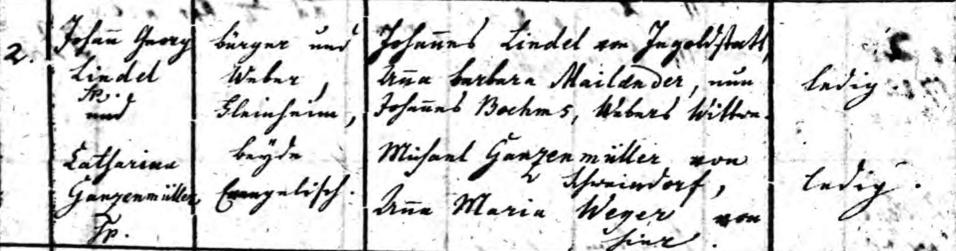 2.
Johann Georg
Lindel
Sr.
und
Catharina
Ganzenmüller,
Sr.
bürger und
Weber,
Kleinheim,
beyde
Evangelisch.
Johannes Lindel von Ingoldstatt,
Anna Barbara Mailænder, nun
Johannes Boehms, Webers Wittwe.
Michael Ganzenmüller von
Schweindorf,
Anna Maria Weyer von
hier.
ledig.
ledig.